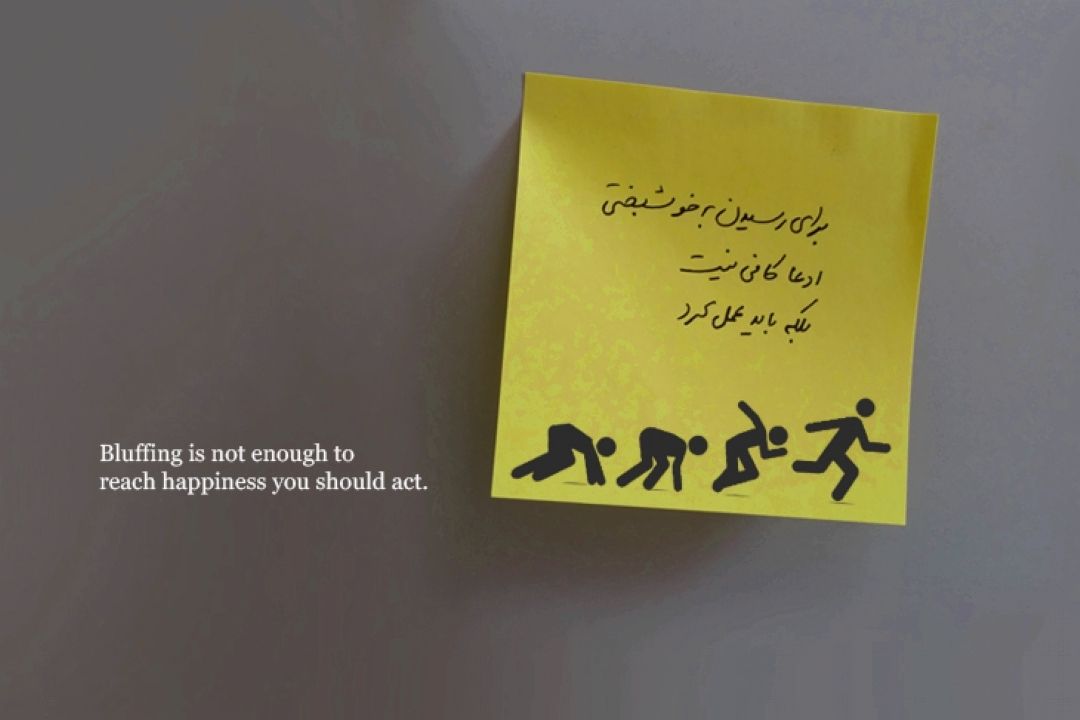 برای رسیدن به خوشبختی
ادعا کافی نیست
بلکه باید عمل کرد
Bluffing is not enough to
reach happiness you should act.